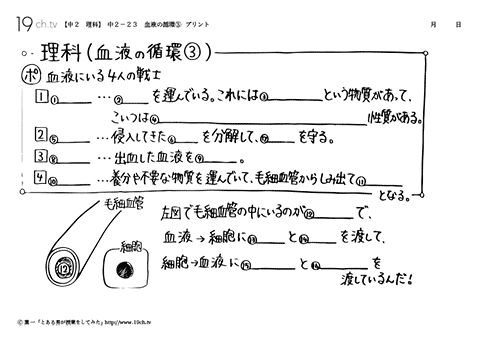 19ch.tv 【中2 理科】 中2-23 血液の循環③ プリント 月 日
理科(血液の循環③)
ポ 血液にいる4人の戦士
1 ① … ② を運んでいる。これには③ という物質があって、
こいつは④ 性質がある。
2 ⑤ … 侵入してきた⑥ を分解して、⑦ を守る。
3 ⑧ … 出血した血液を⑨ 。
4 ⑩ … 養分や不要な物質を運んでいて、毛細血管からしみ出て⑪
となる。
毛細血管
細胞
⑫
左図で毛細血管の中にいるのが⑫ で、
血液→細胞に⑬ と⑭ を渡して、
細胞→血液に⑮ と⑯ を
渡しているんだ!
Ⓒ 葉一「とある男が授業をしてみた」http://www.19ch.tv